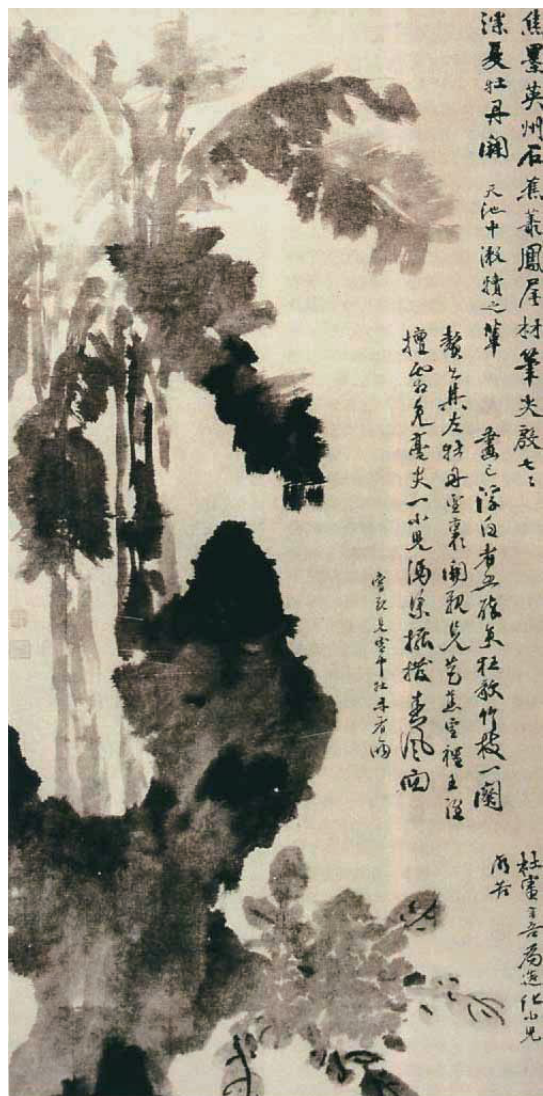 焦墨英州石蕉叢鳳尾材筆尖殷七々
深夏牡丹開 天池中漱犢之輩
畫已浮白者五醉矣狂歌竹枝一闋
贅書其左牡丹雪裏開親見芭蕉雪裡王維
擅霜兔毫尖一小兒馮渠擺撥春風面
嘗親見雪中牡丹者兩
杜審言吾為造化小兒
所苦